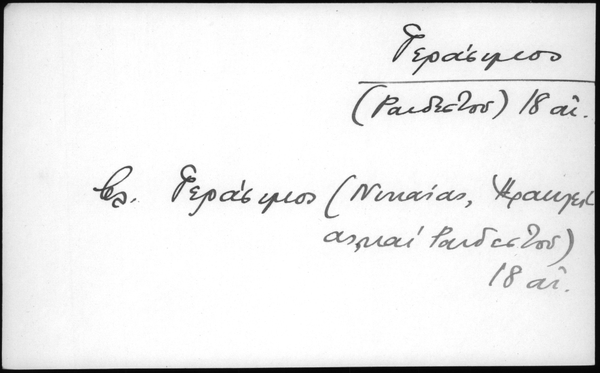 Γεράσιμος
(Ραιδεστοῦ) 18 αἰ.
βλ. Γεράσιμος (Νικαίας, Ἡρακλεί
ας, καί Ραιδεστοῦ)
18 αἰ.